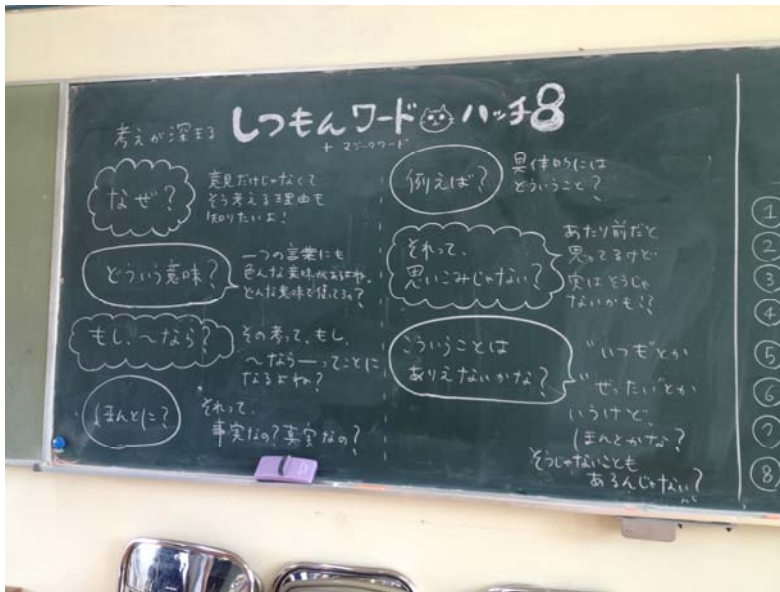 考えが深まる しつもんワード ハッチ8
+ マジックワード
なぜ?
意見だけじゃなくて
そう考える理由も
知りたいよ!
どういう意味?
一つの言葉にも
色んな意味があるよね。
どんな意味で使ってるの?
もし、〜なら?
その考って、もし、
〜なら――ってことに
なるよね?
ほんとに?
それって、
事実なの?真実なの?
例えば?
具体的には
どういうこと?
それって、
思いこみじゃない?
あたり前だと
思ってるけど
実はそうじゃ
ないかも!?
こういうことは
ありえないかな?
"いつも"とか
"ぜったい"とか
いうけど、
ほんとかな?
そうじゃないことも
あるんじゃない?
①
②
③
④
⑤
⑥
⑦
⑧